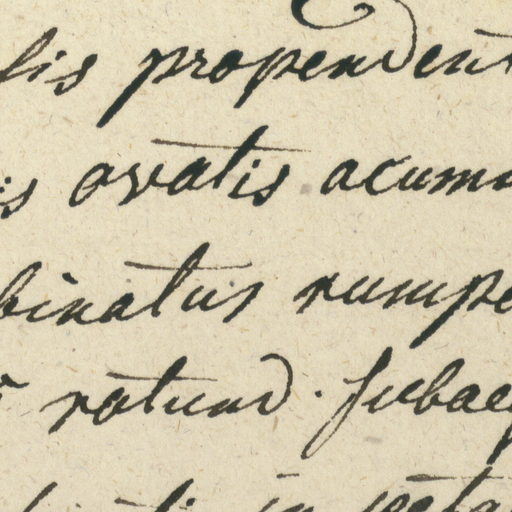 propendent
ovatis acumi
binatus rumpe
rotund. subaeq
in